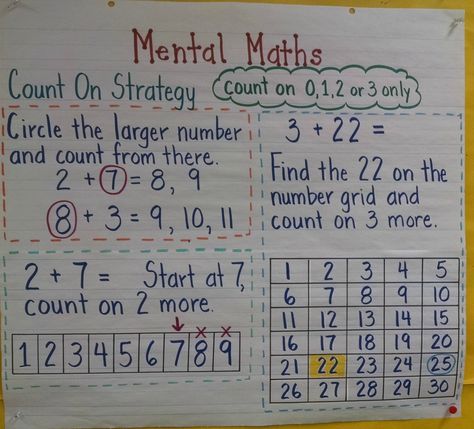 Mental Maths
Count On Strategy
count on 0,1,2 or 3 only
Circle the larger number
and count from there.
2 + 7 = 8, 9
8 + 3 = 9, 10, 11
2 + 7 = Start at 7,
count on 2 more.
x x
1 2 3 4 5 6 7 8 9
3 + 22 =
Find the 22 on the
number grid and
count on 3 more.
1 2 3 4 5
6 7 8 9 10
11 12 13 14 15
16 17 18 19 20
21 22 23 24 25
26 27 28 29 30